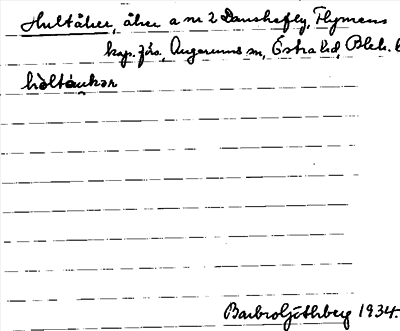 Hultåker, åker a nr 2 Danskefly, Flymens
kap. förs., Augerums sn, Östra hd, Blek. l
hòltåukər
Barbro Göthberg 1934.